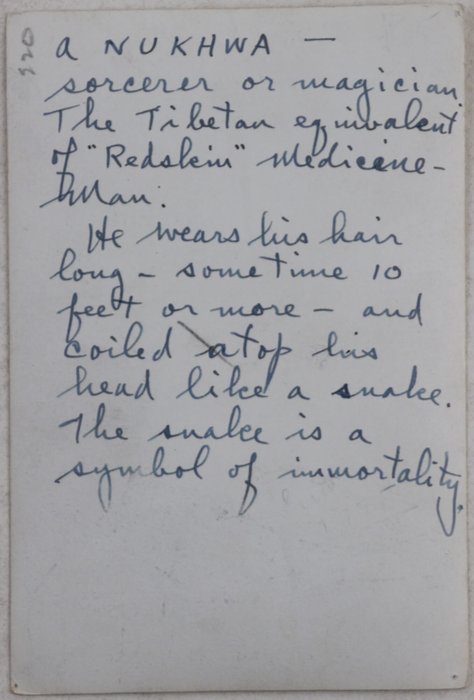 920
a NUKHWA —
sorcerer or magician.
The Tibetan equivalent
of "Redskin" Medicine-
Man.
He wears his hair
long – sometime 10
feet or more – and
coiled atop his
head like a snake.
The snake is a
symbol of immortality.